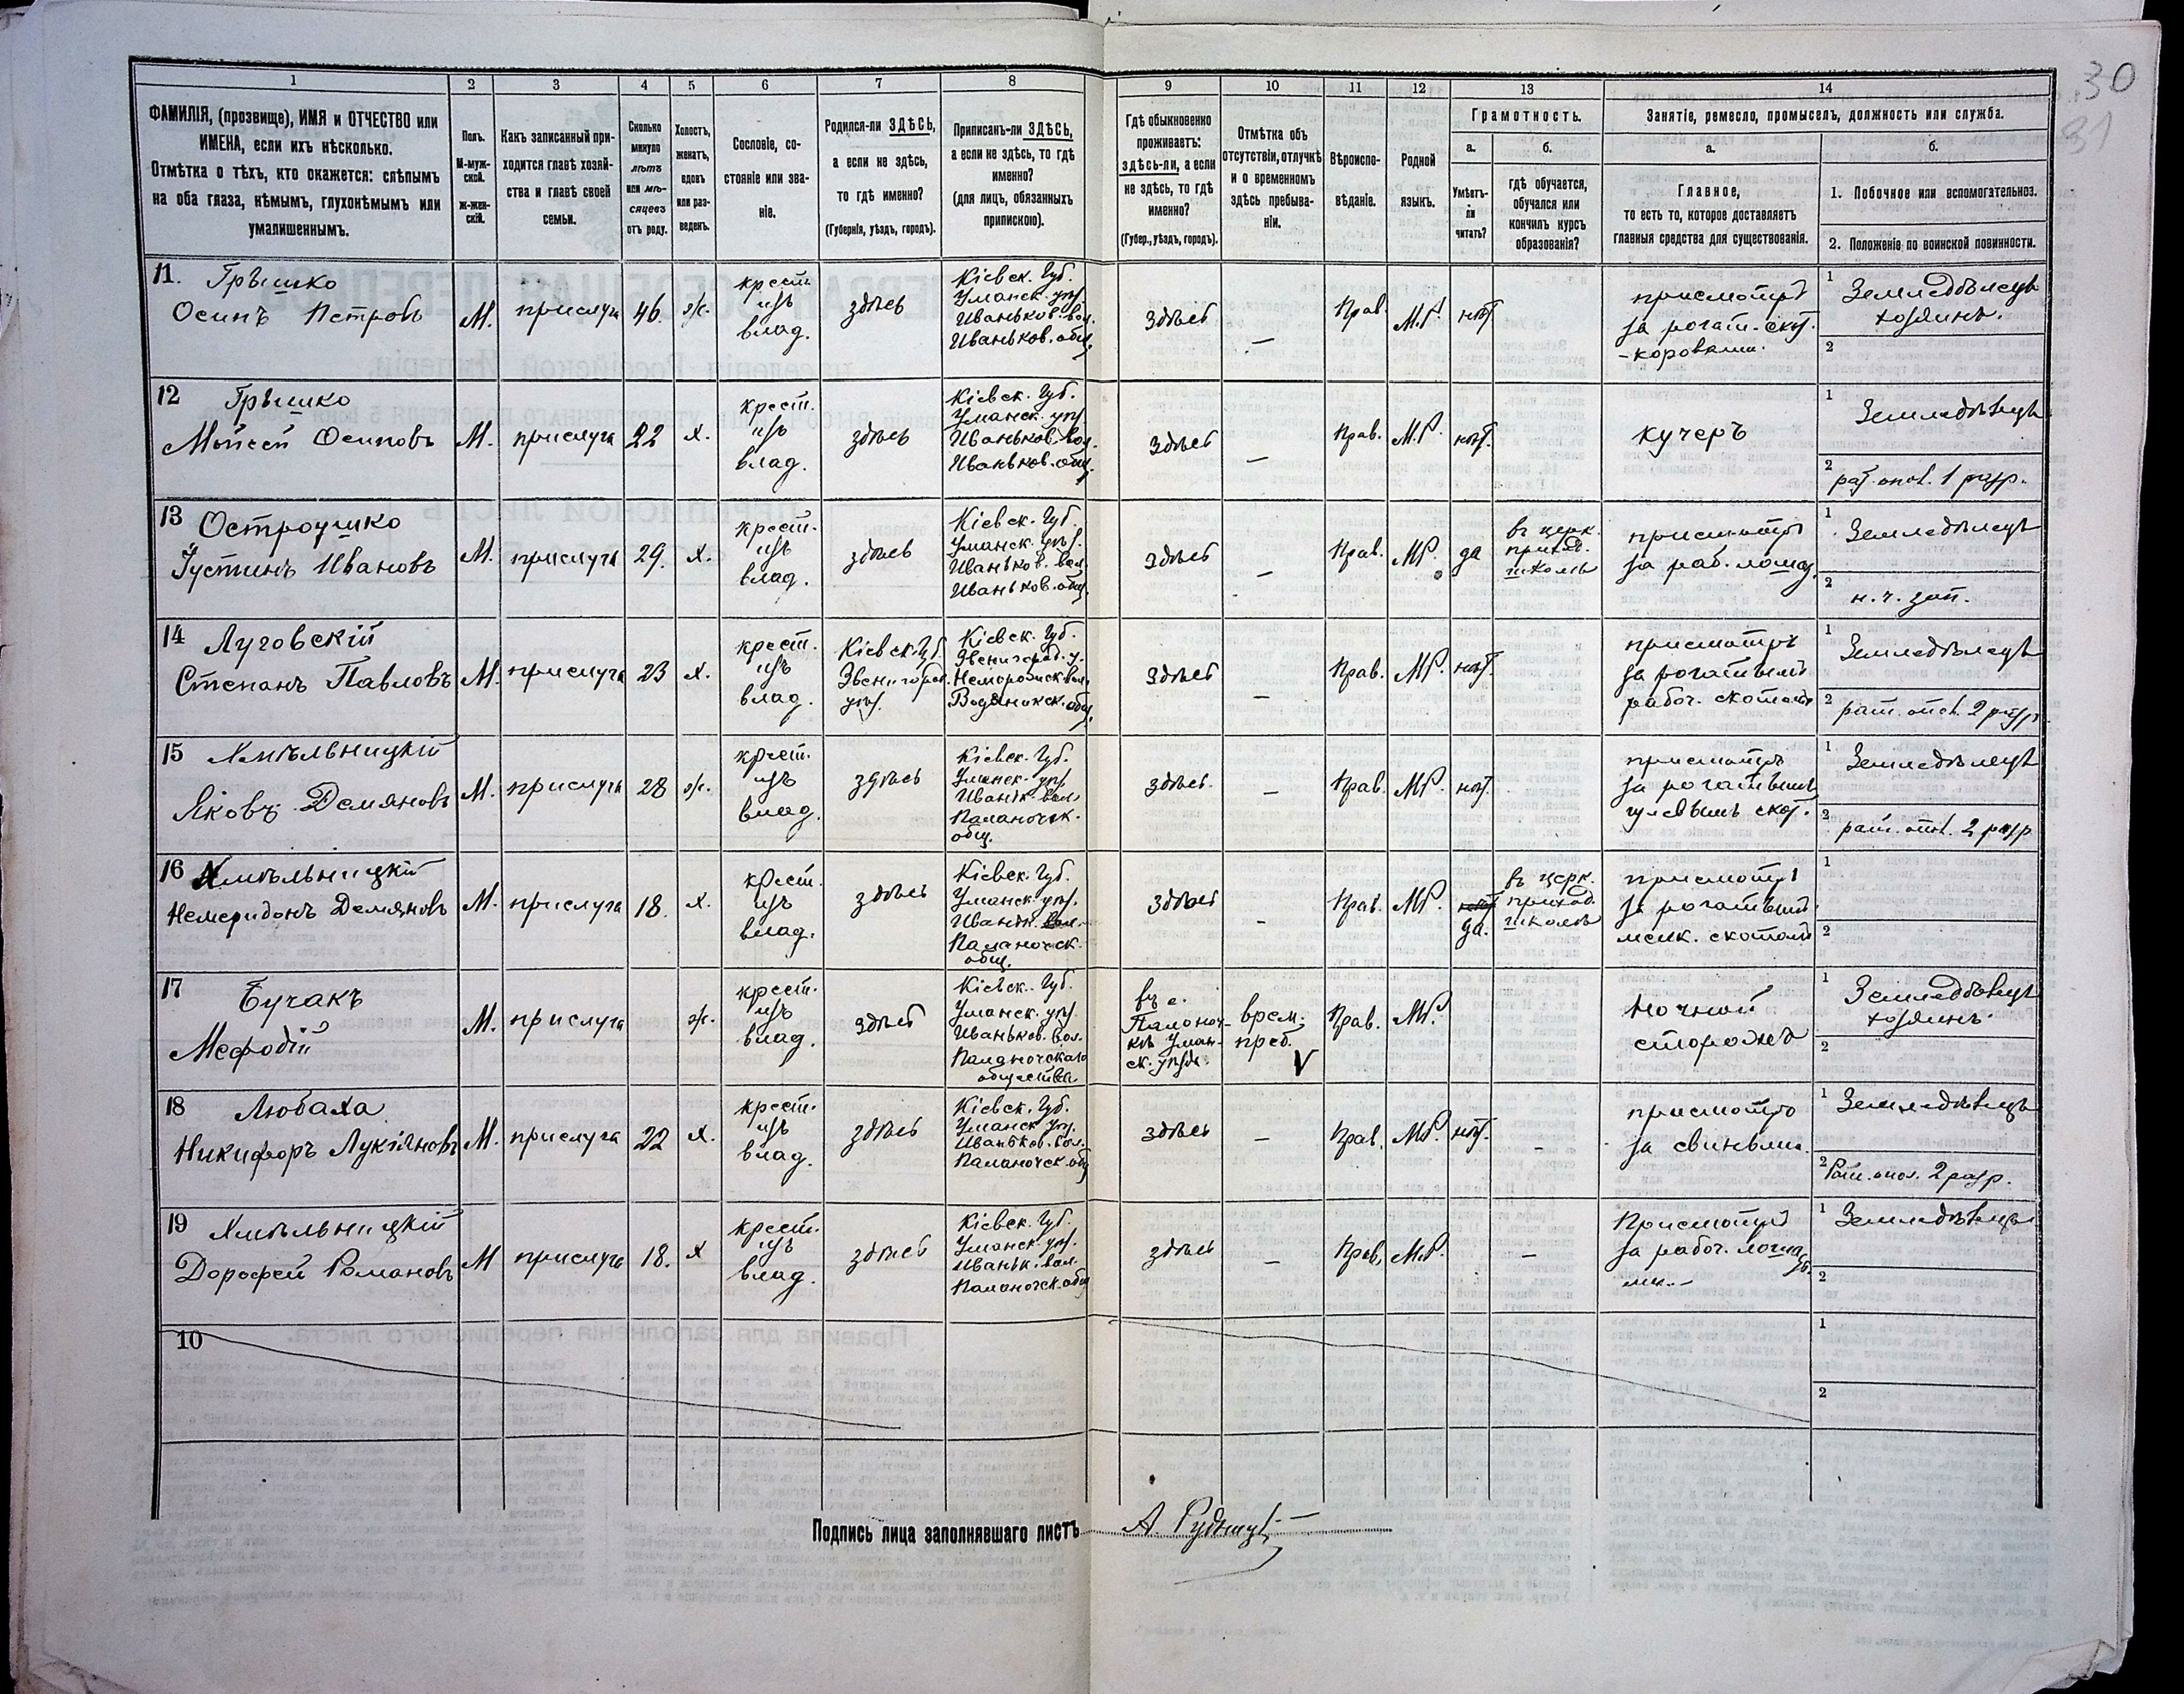 30
31
1 2 3 4 5 6 7 8 9 10 11 12 13 14
ФАМИЛІЯ, (прозвище), ИМЯ и ОТЧЕСТВО или
ИМЕНА, если ихъ нѣсколько.
Отмѣтка о тѣхъ, кто окажется: слѣпымъ
на оба глаза, нѣмымъ, глухонѣмымъ или
умалишеннымъ.
Полъ.
М-муж-
ской.
Ж-жен-
скій.
Какъ записанный при-
ходится главѣ хозяй-
ства и главѣ своей
семьи.
Сколько
минуло
лѣтъ
или мѣ-
сяцевъ
отъ роду.
Холостъ,
женатъ,
вдовъ
или раз-
веденъ.
Сословіе, со-
стояніе или зва-
ніе.
Родился-ли ЗДѢСЬ,
а если не здѣсь,
то гдѣ именно?
(Губернія, уѣздъ, городъ).
Приписанъ-ли ЗДѢСЬ,
а если не здѣсь, то гдѣ
именно?
(для лицъ, обязанныхъ
припискою).
Гдѣ обыкновенно
проживаетъ:
здѣсь-ли, а если
не здѣсь, то гдѣ
именно?
(Губер., уѣздъ, городъ).
Отмѣтка объ
отсутствіи, отлучкѣ
и о временномъ
здѣсь пребыва-
ніи.
Вѣроиспо-
вѣданіе.
Родной
языкъ.
Грамотность.
а.
Умѣетъ-
ли
читать?
б.
гдѣ обучается,
обучался или
кончилъ курсъ
образованія?
Занятіе, ремесло, промыселъ, должность или служба.
а.
Главное,
то есть то, которое доставляетъ
главныя средства для существованія.
б.
1. Побочное или вспомогательное.
2. Положеніе по воинской повинности.
11. Грѣшко
Осипъ Петровъ
М.
прислуга
46.
ж.
крест.
изъ
влад.
здѣсь
Кіевск. Губ.
Уманск. уѣз.
Иваньков. вол.
Иваньков. общ.
здѣсь
—
Прав.
М.Р.
нѣт.
присмотръ
за рогат. скот.
-коровами.
1 Земледѣлецъ
хозяинъ.
2
12 Грѣшко
Мойсей Осиповъ
М.
прислуга
22
х.
крест.
изъ
влад.
здѣсь
Кіевск. Губ.
Уманск. уѣз.
Иваньков. вол.
Иваньков. общ.
здѣсь
—
Прав.
М.Р.
нѣт.
кучеръ
1 Земледѣлецъ
2 рат. опол. 1 разр.
13 Остроушко
Устинъ Ивановъ
М.
прислуга
29.
х.
крест.
изъ
влад.
здѣсь
Кіевск. Губ.
Уманск. уѣз.
Иваньков. вол.
Иваньков. общ.
здѣсь
—
Прав.
МР.
да
въ церк.
приход.
школѣ
присмотръ
за раб. лошад.
1 Земледѣлецъ
2 н. ч. зап.
14 Луговскій
Степанъ Павловъ
М.
прислуга
23
х.
крест.
изъ
влад.
Кіевск. Губ.
Звенигород.
уѣз.
Кіевск. Губ.
Звенигород. у.
Водяникск. общ.
здѣсь
—
Прав.
МР.
нѣт.
присмотръ
за рогатымъ
рабоч. скотомъ
1 Земледѣлецъ
2 рат. опол. 2 разр.
15 Хмѣльницкій
Яковъ Демяновъ
М.
прислуга
28
ж.
крест.
изъ
влад.
здѣсь
Кіевск. Губ.
Уманск. уѣз.
Иваньк. вол.
Паланочск.
общ.
здѣсь.
—
Прав.
МР.
нѣт.
присмотръ
за рогатымъ
гулевымъ скот.
1 Земледѣлецъ
2 рат. опол. 2 разр.
16 Хмѣльницкій
Демяновъ
М.
прислуга
18.
х.
крест.
изъ
влад.
здѣсь
Кіевск. Губ.
Уманск. уѣз.
Иваньк. вол.
Паланочск.
общ.
здѣсь
—
Прав.
МР.
нѣт
да.
въ церк.
приход.
школѣ
присмотръ
за рогатымъ
мелк. скотомъ
1
2
17 Бучакъ
Мефодій
М.
прислуга
ж.
крест.
изъ
влад.
здѣсь
Кіевск. Губ.
Уманск. уѣз.
Иваньков. вол.
Паланочскаго
общества
въ с.
Паланоч-
кѣ Уман-
ск. уѣзд.
врем.
преб.
V
Прав.
МР.
ночной
сторожъ
1 Земледѣлецъ
хозяинъ.
2
18 Любаха
Никифоръ Лукіяновъ
М.
прислуга
22
х.
крест.
изъ
влад.
здѣсь
Кіевск. Губ.
Уманск. уѣз.
Иваньков. вол.
Паланочск. общ.
здѣсь
—
Прав.
МР.
нѣт.
—
присмотръ
за свиньями.
1 Земледѣлецъ
2 Рат. опол. 2 разр.
19 Хмѣльницкій
Дорофей Романовъ
М
прислуга
18.
х
крест.
изъ
влад.
здѣсь
Кіевск. Губ.
Уманск. уѣз.
Иваньк. вол.
Паланочск. общ.
здѣсь
—
Прав.
М.Р.
—
Присмотръ
за рабоч. лошадь
ми.-
1 Земледѣлецъ
2
10
1
2
Подпись лица заполнявшаго листъ